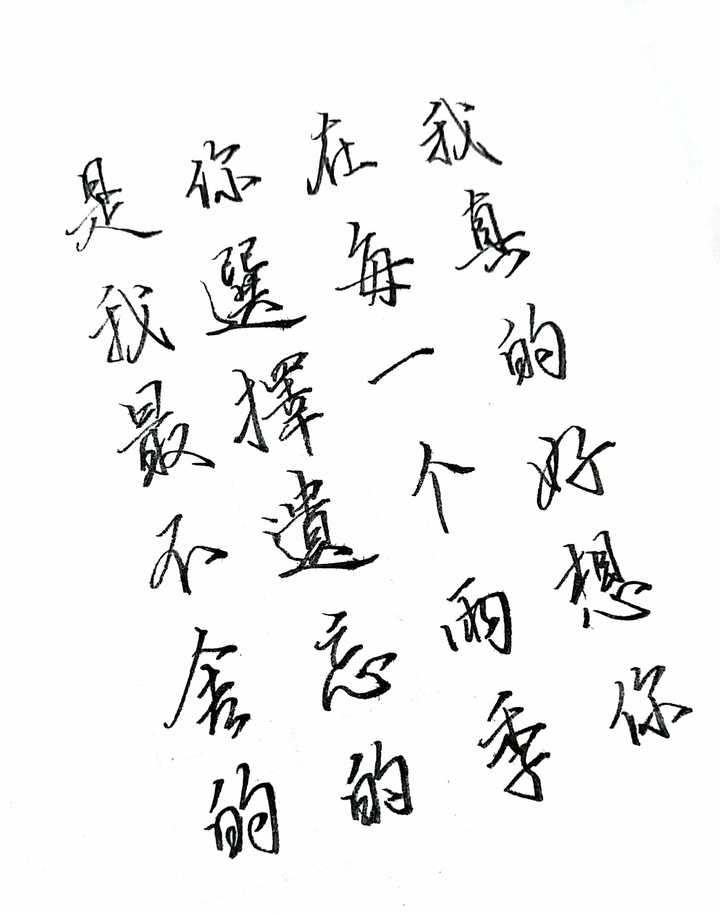 我真的好想你
在每一个雨季
你選擇遺忘的
是我最不舍的